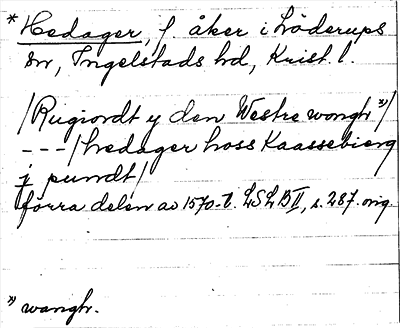 * Hedager, f. åker i Löderups
sn, Ingelstads hd, Krist. l.
/Rugiordt y den Westre wongh ×)/
---/hedager hoss Kaassebierg
j pundt/
förra delen av 1570-t. LSLB II, s. 287. orig.
×) wangh.